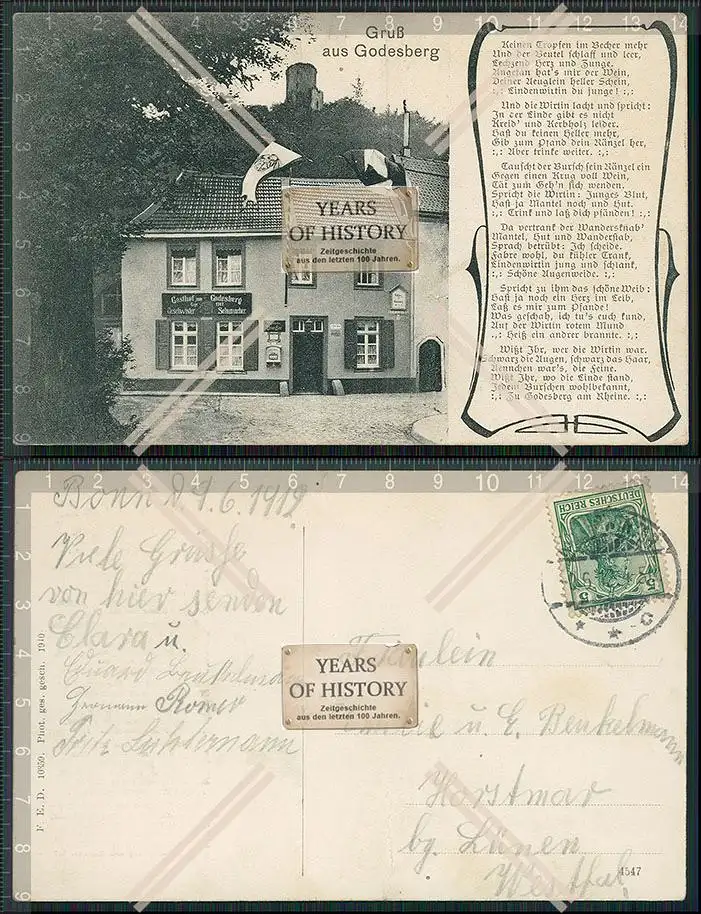 Gruß
aus Godesberg
Gasthof zum Godesberg
Geschwister Schumacher
YEARS
OF HISTORY
Zeitgeschichte
aus den letzten 100 Jahren.
Keinen Tropfen im Becher mehr
Und der Beutel schlaff und leer,
Lechzend Herz und Zunge.
Angetan hat's mir der Wein,
Deiner Aeuglein heller Schein,
:,: Lindenwirtin du junge! :,:
Und die Wirtin lacht und spricht:
In der Linde gibt es nicht
Kreid' und Kerbholz leider.
Hast du keinen Heller mehr,
Gib zum Pfand dein Ränzel her,
:,: Aber trinke weiter. :,:
Tauscht der Bursch sein Ränzel ein
Gegen einen Krug voll Wein,
Tät zum Geh'n sich wenden.
Spricht die Wirtin: Junges Blut,
Hast ja Mantel noch und Hut.
:,: Trink und laß dich pfänden! :,:
Da vertrank der Wandersknab'
Mantel, Hut und Wanderstab,
Sprach betrübt: Ich scheide.
Fahre wohl, du kühler Trank,
Lindenwirtin jung und schlank,
:,: Schöne Augenweide. :,:
Spricht zu ihm das schöne Weib:
Hast ja noch ein Herz im Leib,
Laß es mir zum Pfande!
Was geschah, ich tu's euch kund,
Auf der Wirtin rotem Mund
:,: Heiß ein andrer brannte. :,:
Wißt Ihr, wer die Wirtin war,
Schwarz die Augen, schwarz das Haar,
Aennchen war's, die Feine.
Wißt Ihr, wo die Linde stand,
Jedem Burschen wohlbekannt,
:,: Zu Godesberg am Rheine. :,:
Bonn d. 9.6.1912
Viele Grüsse
von hier senden
Clara u.
Eduard Benkelmann
Hermann Römer
Fritz
F. E. D. 10859. Phot. ges. gesch. 1910
DEUTSCHES REICH
5 5
* * C
YEARS
OF HISTORY
Zeitgeschichte
aus den letzten 100 Jahren.
Fräulein
u. E. Benkelmann
Horstmar
bg. Lünen
Westfal.
4547